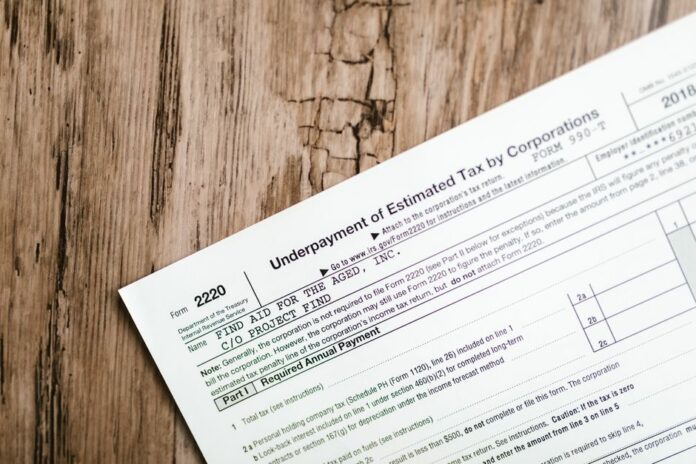 OMB No. 1545-0123
Form 2220
Underpayment of Estimated Tax by Corporations
FORM 990-T
2018
Department of the Treasury
Internal Revenue Service
▶ Attach to the corporation's tax return.
▶ Go to www.irs.gov/Form2220 for instructions and the latest information.
Name
FIND AID FOR THE AGED, INC.
C/O PROJECT FIND
Employer identification
**-***697
Note: Generally, the corporation is not required to file Form 2220 (see Part II below for exceptions) because the IRS will figure any penalty
bill the corporation. However, the corporation may still use Form 2220 to figure the penalty. If so, enter the amount from page 2, line 38,
estimated tax penalty line of the corporation's income tax return, but do not attach Form 2220.
Part I Required Annual Payment
1 Total tax (see instructions)
1
2a Personal holding company tax (Schedule PH (Form 1120), line 26) included on line 1
2a
b Look-back interest included on line 1 under section 460(b)(2) for completed long-term
contracts or section 167(g) for depreciation under the income forecast method
2b
tax paid on fuels (see instructions)
2c
2c
result is less than $500, do not complete or file this form. The corporation
income tax return. See instructions. Caution: If the tax is zero
and enter the amount from line 3 on line 5
is required to skip line 4,